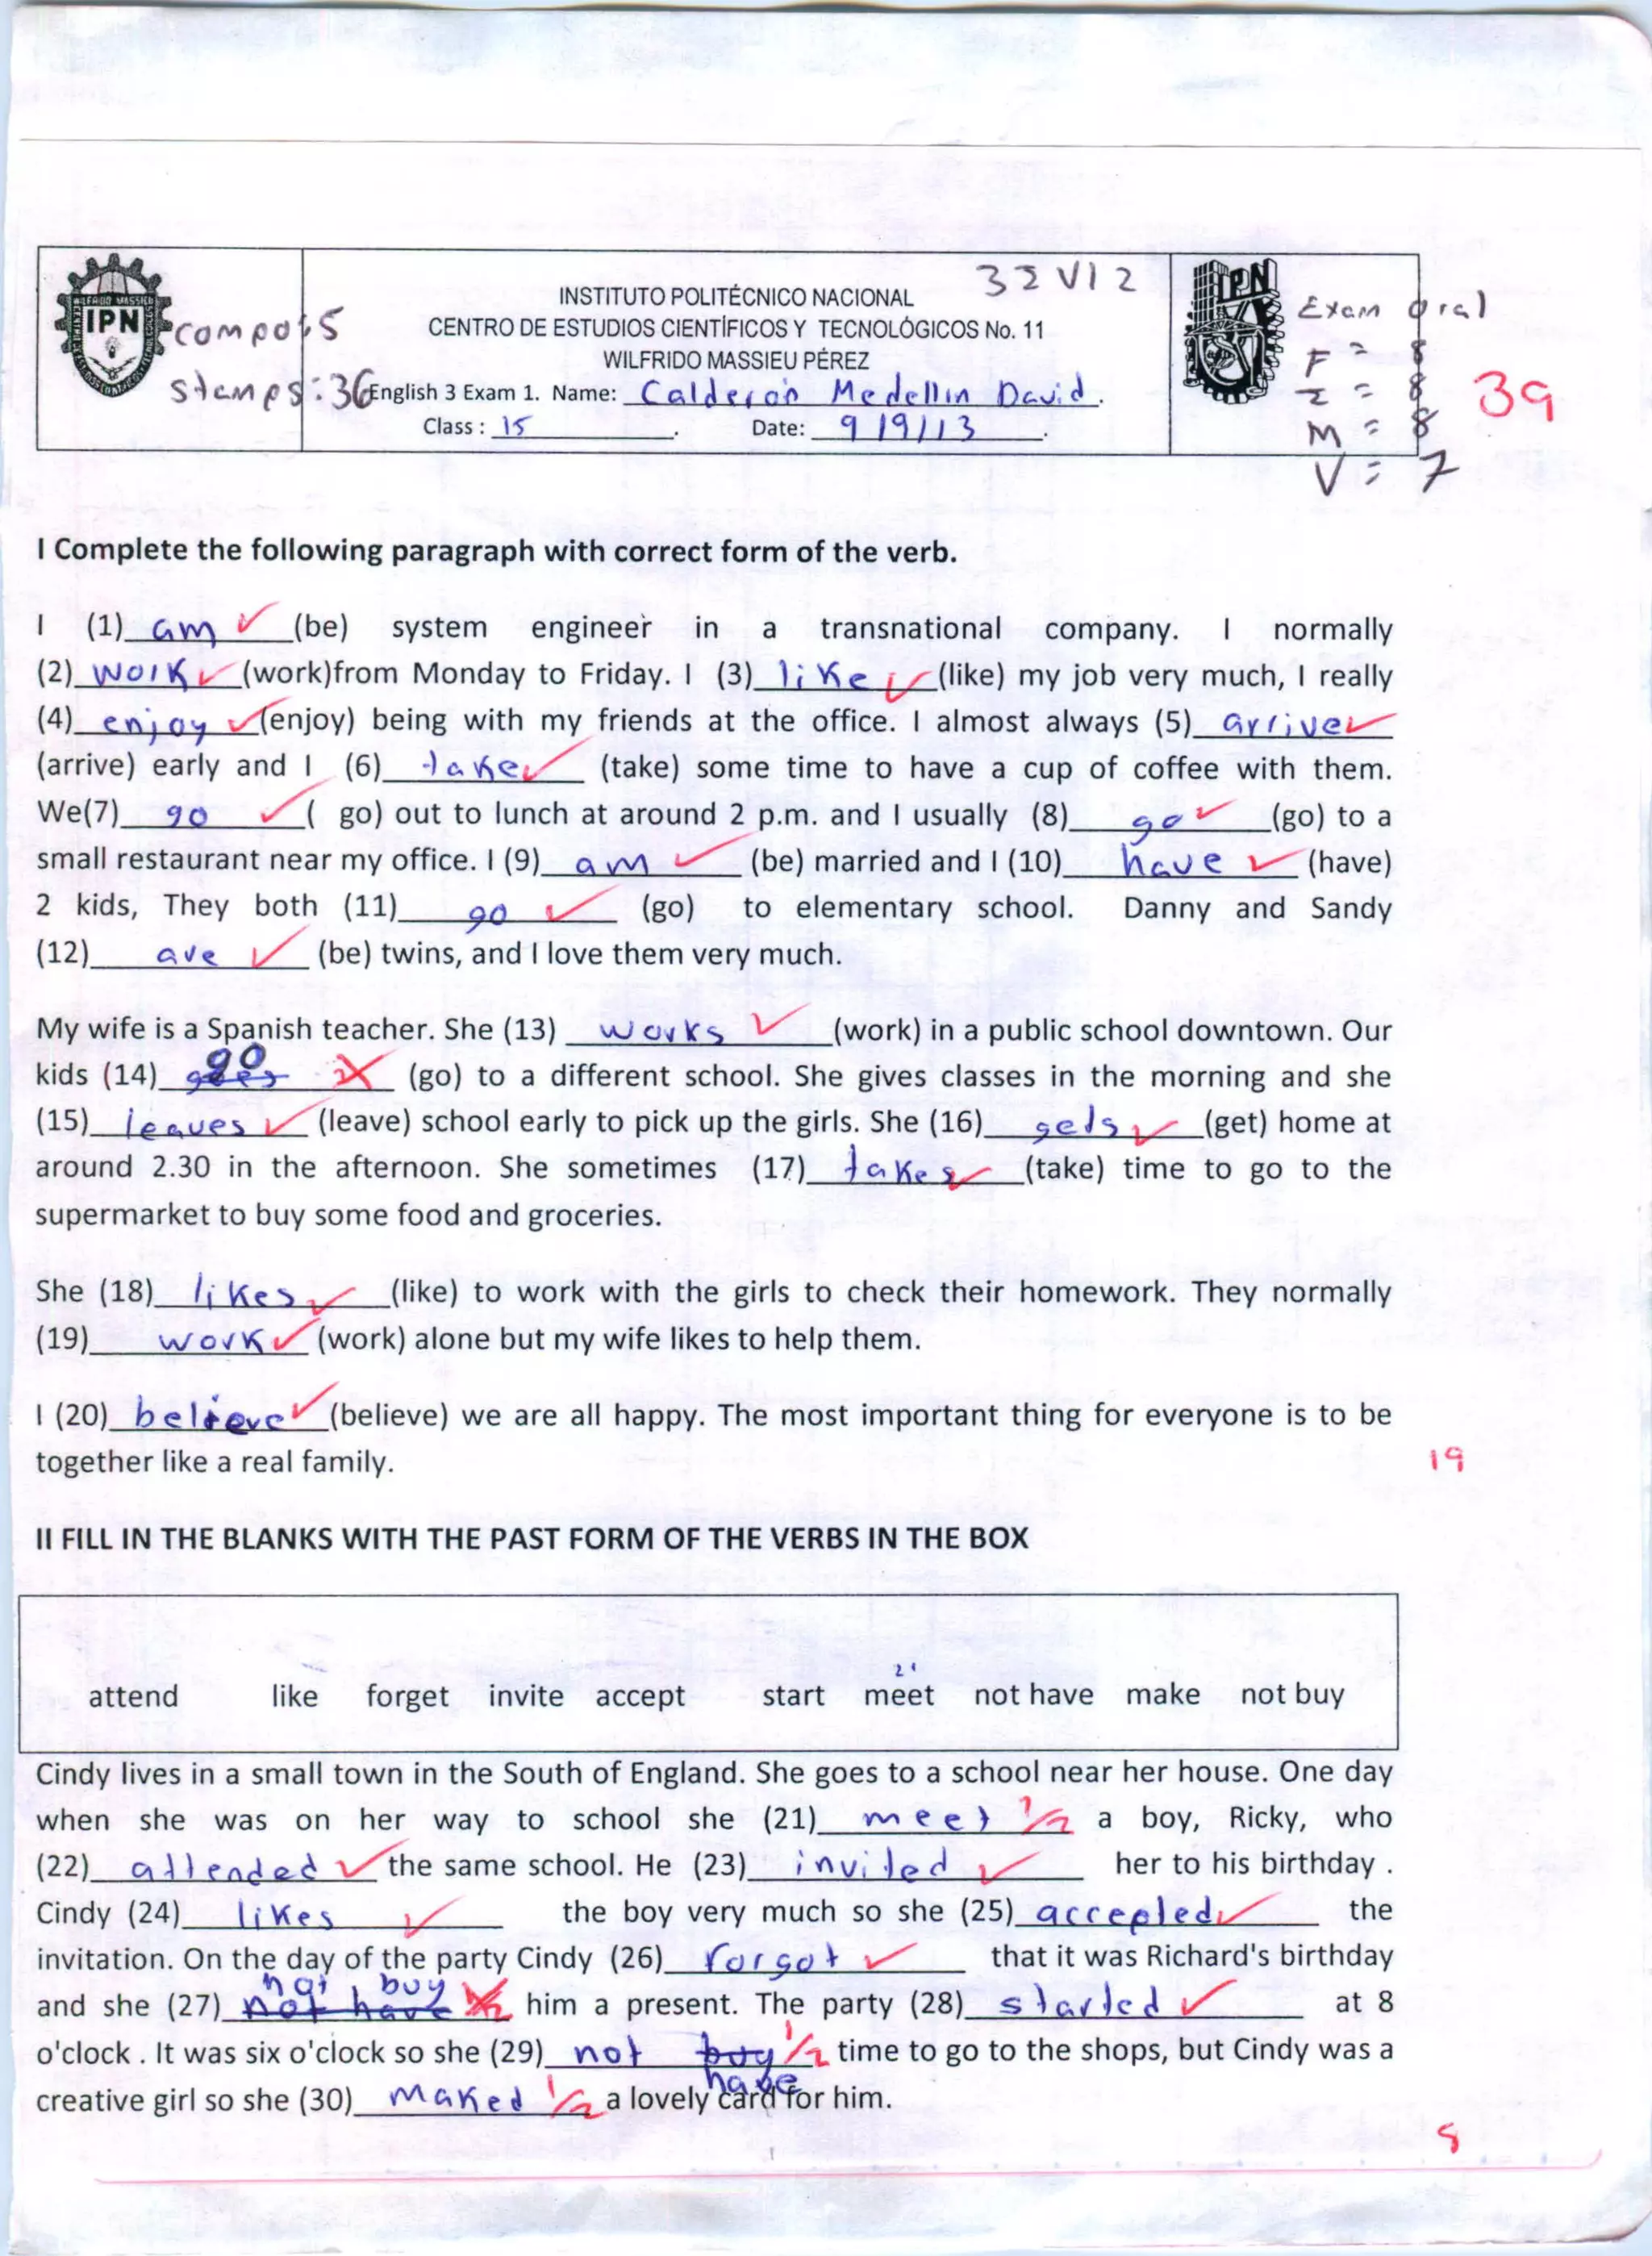 INSTITUTO POLITÉCNICO NACIONAL 33 V12
CENTRO DE ESTUDIOS CIENTÍFICOS Y TECNOLÓGICOS No. 11
WILFRIDO MASSIEU PÉREZ
English 3 Exam 1. Name: Calderón Medellin David.
Class : 15. Date: 9/9/13.
IPN
compots
stamps: 36
IPN
Exam oral
F = 8
I = 8
M = 8
V = 7
39
I Complete the following paragraph with correct form of the verb.
I (1) am (be) system engineer in a transnational company. I normally
(2) work (work)from Monday to Friday. I (3) like (like) my job very much, I really
(4) enjoy (enjoy) being with my friends at the office. I almost always (5) arrive
(arrive) early and I (6) take (take) some time to have a cup of coffee with them.
We(7) go ( go) out to lunch at around 2 p.m. and I usually (8) go (go) to a
small restaurant near my office. I (9) am (be) married and I (10) have (have)
2 kids, They both (11) go (go) to elementary school. Danny and Sandy
(12) are (be) twins, and I love them very much.
My wife is a Spanish teacher. She (13) works (work) in a public school downtown. Our
kids (14) goes go (go) to a different school. She gives classes in the morning and she
(15) leaves (leave) school early to pick up the girls. She (16) gets (get) home at
around 2.30 in the afternoon. She sometimes (17) takes (take) time to go to the
supermarket to buy some food and groceries.
She (18) likes (like) to work with the girls to check their homework. They normally
(19) work (work) alone but my wife likes to help them.
I (20) believe (believe) we are all happy. The most important thing for everyone is to be
together like a real family.
19
II FILL IN THE BLANKS WITH THE PAST FORM OF THE VERBS IN THE BOX
21
attend like forget invite accept start meet not have make not buy
Cindy lives in a small town in the South of England. She goes to a school near her house. One day
when she was on her way to school she (21) meet 1/2 a boy, Ricky, who
(22) attended the same school. He (23) invited her to his birthday .
Cindy (24) likes the boy very much so she (25) accepted the
invitation. On the day of the party Cindy (26) forgot that it was Richard's birthday
and she (27) not have not buy 1/2 him a present. The party (28) started at 8
o'clock . It was six o'clock so she (29) not buy have 1/2 time to go to the shops, but Cindy was a
creative girl so she (30) maked 1/2 a lovely card for him.
8